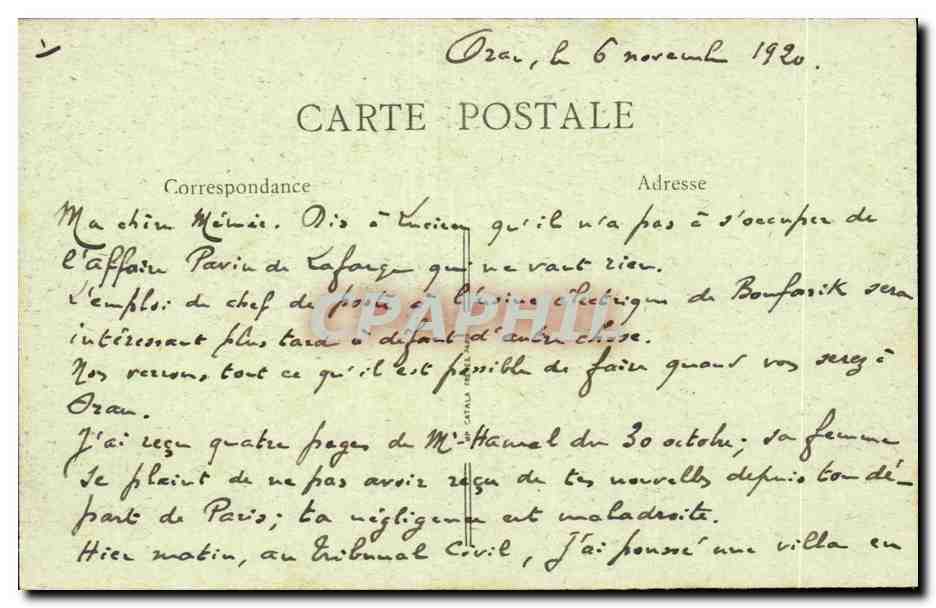 Oran, le 6 novembre 1920.
CARTE POSTALE
Correspondance
Adresse
Ma chère Mémée. Dis à Lucien qu'il n'a pas à s'occuper de
l'affaire Pavin de Lafarge qui ne vaut rien.
L'emploi de chef de poste à l'usine électrique de Boufarik sera
intéressant plus tard à défaut d'autre chose.
Nos verrons, tout ce qu'il est possible de faire quand vos serez à
Oran.
J'ai reçu quatre pages de Mr Hamel du 30 octobre; sa femme
se plaint de ne pas avoir reçu de tes nouvelles depuis ton dé-
part de Paris; ta négligence est maladroite.
Hier matin, au Tribunal Civil, J'ai poussé une villa en
CPAPHIL
CATALA FRÈRES PARIS